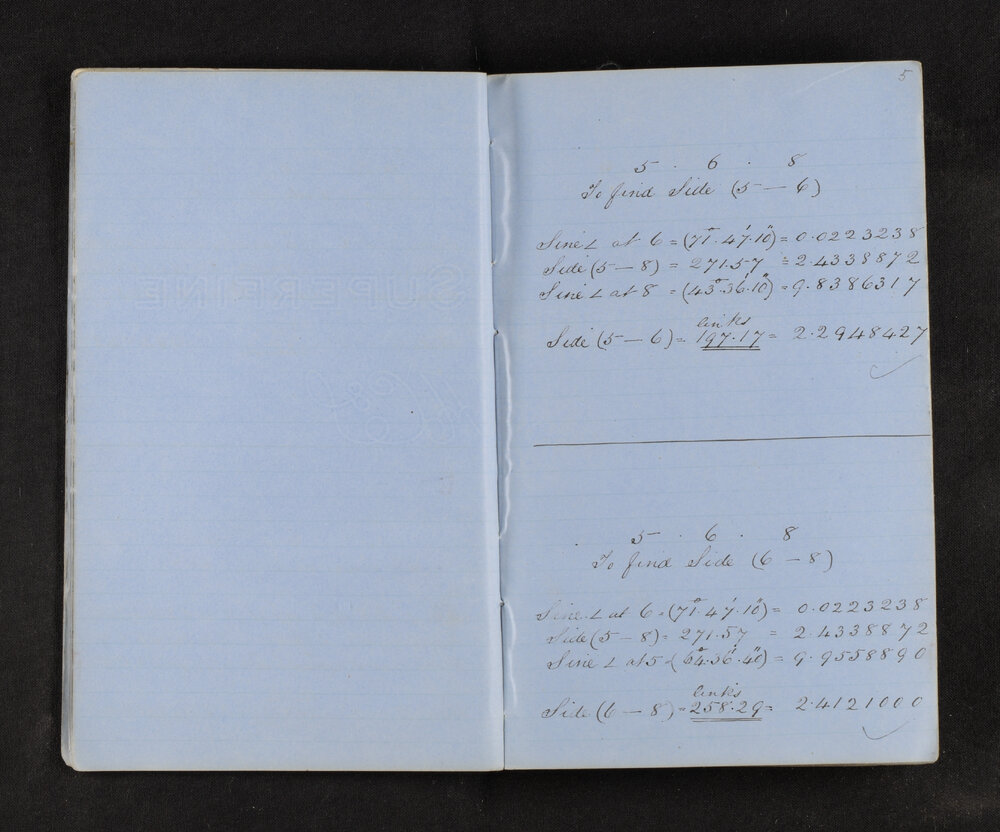 5
5 . 6 . 8
To find Side (5 — 6)
Sine ∠ at 6 = (71°.47'.10") = 0.0223238
Side (5 — 8) = 271.57 = 2.4338872
Sine ∠ at 8 = (43°.36'.10") = 9.8386317
links
Side (5 — 6) = 197.17 = 2.2948427
5 . 6 . 8
To find Side (6 — 8)
Sine ∠ at 6 = (71°.47'.10") = 0.0223238
Side (5 — 8) = 271.57 = 2.4338872
Sine ∠ at 5 = (64°.36'.40") = 9.9558890
links
Side (6 — 8) = 258.29 = 2.4121000
SUPERFINE